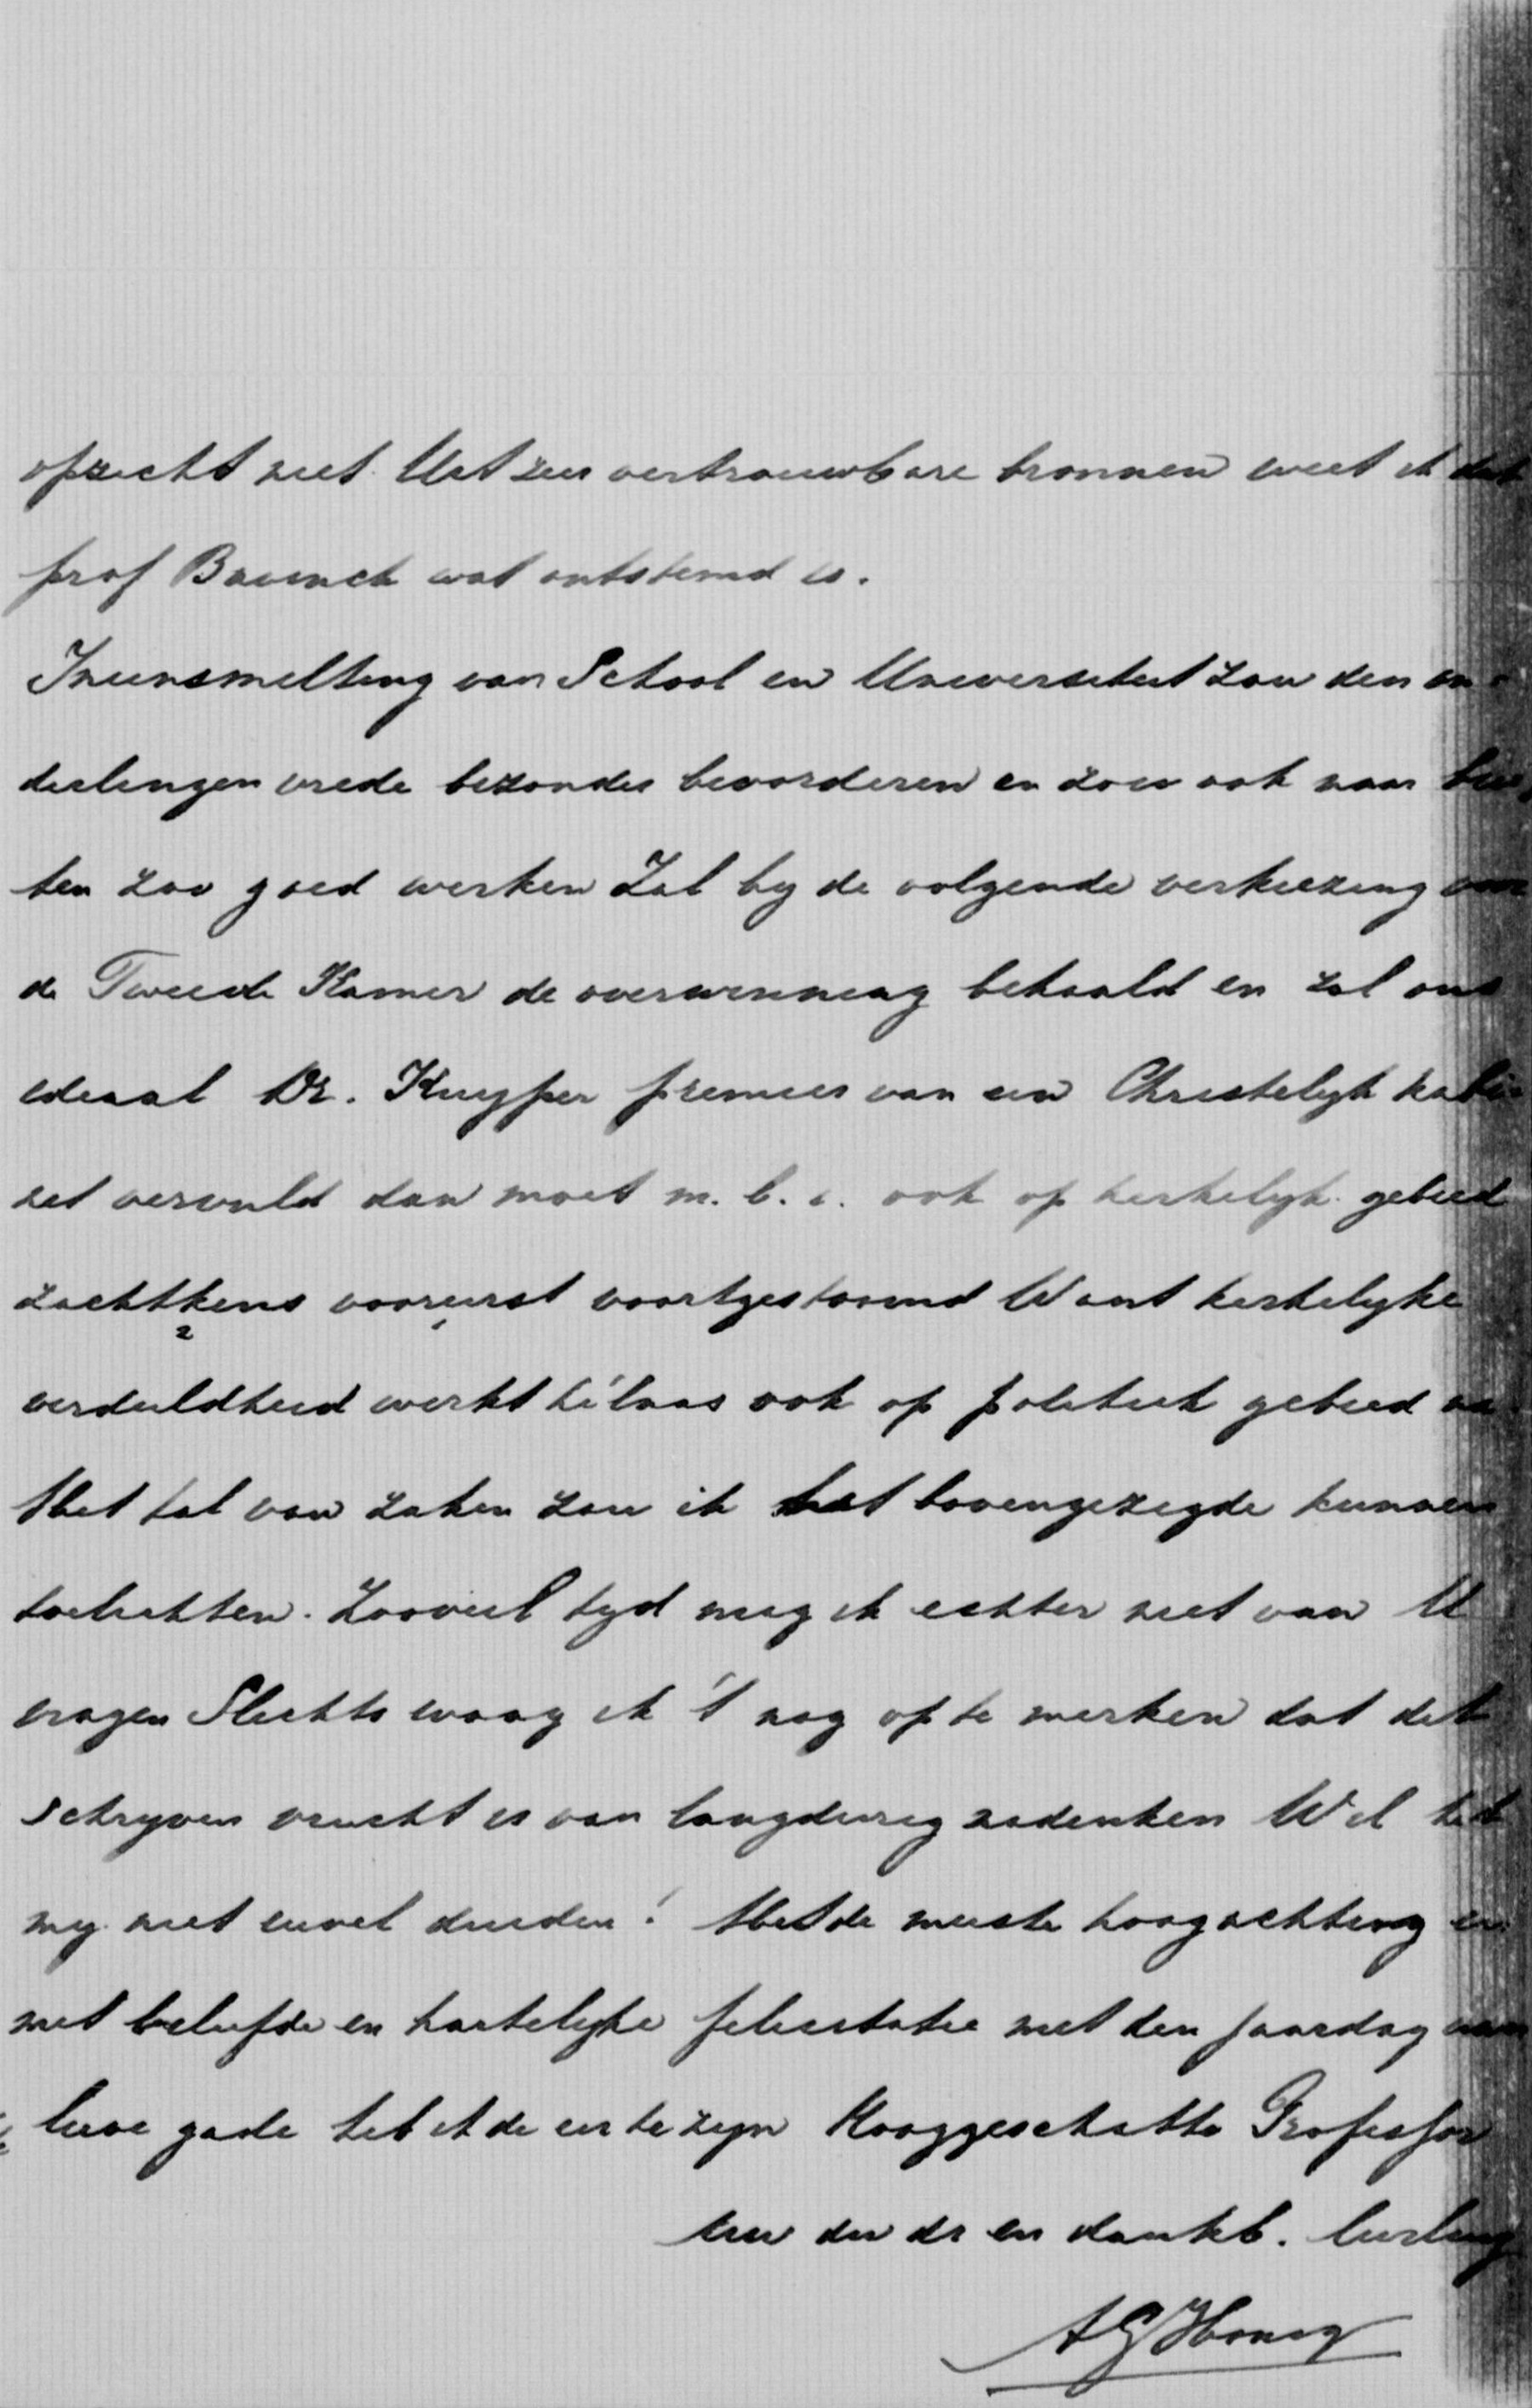 opzicht niet. Uit zeer vertrouwbare bronnen weet ik dat
prof Bavinck wat ontstemd is.
Ineensmelting van School en Universiteit zou den on-
derlingen vrede bezonder bevorderen en zou ook naar bui-
ten zoo goed werken Zal by de volgende verkiezing voor
de Tweede Kamer de overwinning behaald en zal ons
ideaal Dr. Kuyper premier van een Christelyk kabi-
net vervuld dan moet m. b. i. ook op kerkelyk gebied
zachtkens vooreerst voortgestoomd Want kerkelyke
verdeeldheid werkt hélaas ook op politiek gebied na
Met tal van zaken zou ik het bovengezegde kunnen
toelichten. Zooveel tyd mag ik echter niet van U
vragen Slechts waag ik 't nog op te merken dat dit
schryven vrucht is van langdurig nadenken Wil het
my niet euvel duiden! Met de meeste hoogachting en
met beleefde en hartelyke felicitatie met den jaardag van
lieve gade heb ik de eer te zyn Hooggeschatte Professor
Uw dw dr en dankb. leerling
A G Honig